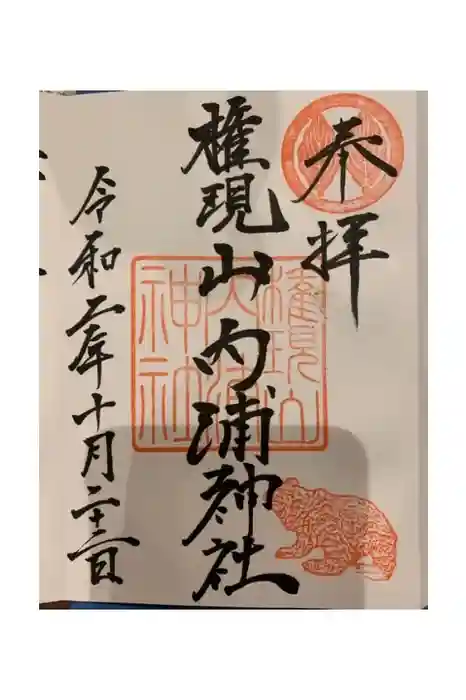 奉拝
権現山内浦神社
権現山
内浦
神社
令和二年十月二十二日